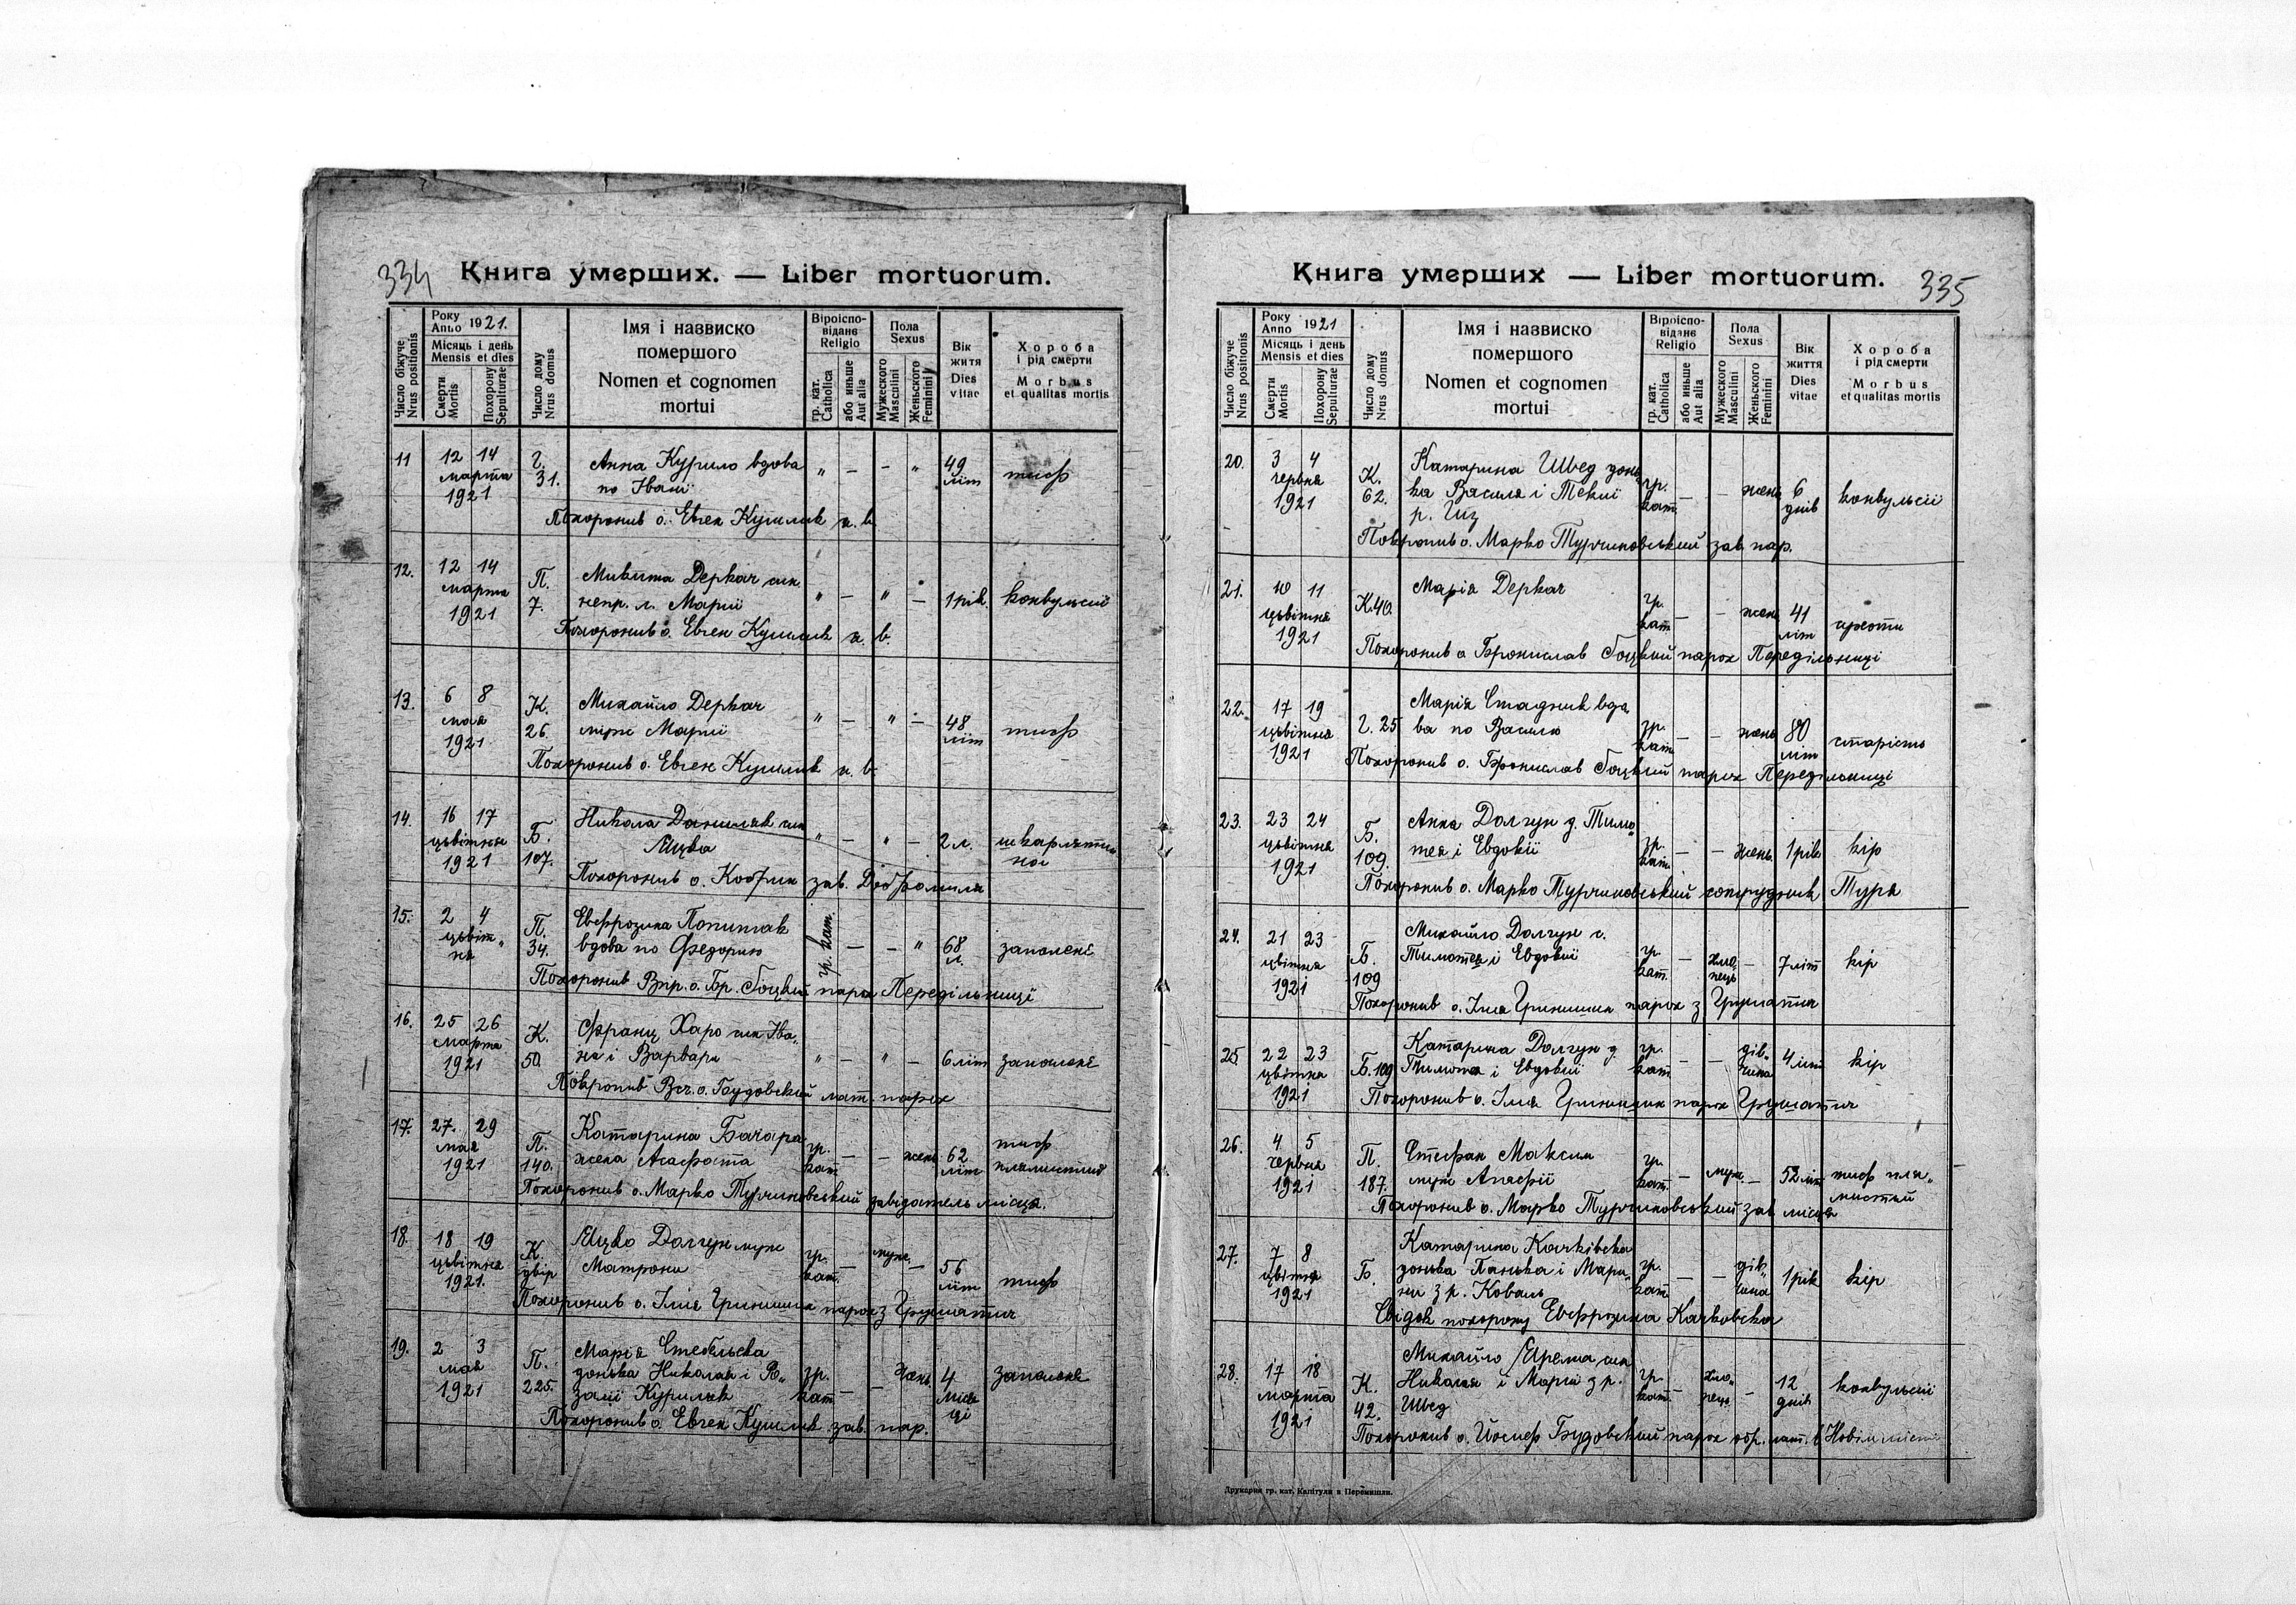 334
Книга умерших. — Liber mortuorum.
Число біжуче
Nrus positionis
Року
Anno 1921.
Місяць і день
Mensis et dies
Смерти
Mortis
Похорону
Sepulturae
Число дому
Nrus domus
Імя і назвиско
помершого
Nomen et cognomen
mortui
Віроіспо-
відане
Religio
гр. кат.
Catholica
або иньше
Aut alia
Пола
Sexus
Мужеского
Masculini
Женьского
Feminini
Вік
житя
Dies
vitae
Хороба
і рід смерти
Morbus
et qualitas mortis
11 12 14 марта 1921 Г. 31. Анна Курило вдова „ — — „ 49 літ тиф
по Івані
Похоронив о. Евген Кушлик
12. 12 14 марта 1921 П. 7. Микита Деркач син „ — „ — 1 рік. конвульсиї
непр. л. Марії
Похоронив о. Евген Кушлик
13. 6 8 мая 1921 К. 26. Михайло Деркач „ — „ — 48 літ тиф
муж Марії
Похоронив о. Евген Кушлик
14. 16 17 цьвітня 1921 Б. 107. Никола Даниляк син „ — „ — 2 л. шкарлятина
Яцка
Похоронив о. зав. Добромиля
15. 2 4 цьвітня П. 34. Евфрозина Попишак гр. кат. — — „ 68 л. запаленє
вдова по Федорию
Похоронив Впр. о. Бр. Боцкий парох Передільниці
16. 25 26 марта 1921 К. 50. Франц Харо син Іва„ „ — „ — 6 літ запаленє
на і Варвари
Похоронив Вч. о. Будовский лат. парох
17. 27. 29 мая 1921 П. 140. Катарина Бачара гр. кат — — жень 62 літ тиф плямистий
жена Асафата
Похоронив о. Марко Турчиновський завідатель місця.
18. 18 19 цьвітня 1921. К. двір Яцко Долгун муж гр. кат. — муж. — 56 літ тиф
Матрони
Похоронив о. Ілія Гринишин парох з Грушатич
19. 2 3 мая 1921 П. 225. Марія Стебельска гр. кат — — жень. 4 місяці запаленє
донька Николая і Ро„
залії Куриляк
Похоронив о. Евген Кушлик зав. пар.
335
Книга умерших — Liber mortuorum.
Число біжуче
Nrus positionis
Року
Anno 1921
Місяць і день
Mensis et dies
Смерти
Mortis
Похорону
Sepulturae
Число дому
Nrus domus
Імя і назвиско
помершого
Nomen et cognomen
mortui
Віроіспо-
відане
Religio
гр. кат.
Catholica
або иньше
Aut alia
Пола
Sexus
Мужеского
Masculini
Женьского
Feminini
Вік
життя
Dies
vitae
Хороба
і рід смерти
Morbus
et qualitas mortis
20. 3 4 червня 1921 К. 62. Катарина Швед донь„ гр. кат. — — жень 6 днів конвульсії
ка Василя і Теклї
р. Гиз
Похоронив о. Марко Турчиновський зав. пар.
21. 10 11 цьвітня 1921 К. 40. Марія Деркач гр. кат — — жень 41 літ
Похоронив о Бронислав Боцкий парох Передільниці
22. 17 19 цьвітня 1921 Г. 25 Марія Стадник вдо гр. кат. — — жень 80 літ старість
ва по Василю
Похоронив о. Бронислав Боцкий парох Передільниці
23. 23 24 цьвітня 1921 Б. 109. Анна Долгун д. Тимо„ гр. кат. — — жень. 1 рік кір
тея і Евдокії
Похоронив о. Марко Турчиновський сотрудник Туря
24. 21 23 цвітня 1921 Б. 109 Михайло Долгун с. гр. кат. — хлопець — 7 літ кір
Тимотея і Евдокії
Похоронив о. Ілія Гринишин парох з Грушатич
25 22 23 цвітня 1921 Б. 109 Катарина Долгун д. гр. кат — — дівчина 4 літ кір
Тимотея і Евдокії
Похоронив о. Ілія Гринишин парох Грушатич
26. 4 5 червня 1921 П. 187. Стефан Максим гр. кат. — муж. — 52 літ тиф пля„
муж Анафії мистий
Похоронив о. Марко Турчиновський зав. місця
27. 7 8 цвітня 1921 Б. Катарина Качківска гр. кат — — дівчина 1 рік кір
донька Панька і Мари„
ни з р. Коваль
Свідок похорону Евфрозина Качковска
28. 17 18 марта 1921 К. 42. Михайло Ярема син гр. кат. — хлопець — 12 днів конвульсії
Николая і Марії з р.
Швед
Похоронив о. Йосиф Будовский парох обр. лат. в Новім місті
Друкарня гр. кат. Капітули в Перемишли.